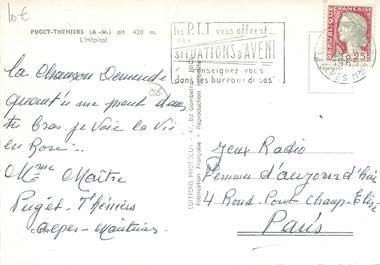 10€
PUGET-THENIERS (A.-M.) alt. 420 m.
L'Hôpital
les P.T.T vous offrent
SITUATIONS d'AVENI
renseignez-vous
dans les bureaux de pos
REPUBLIQUE FRANÇAISE
0,25
La Chanson Demandé
quant'il me prend dans
ses bras je Voie la Vie
en Rose..
Mme Maître
Puget-Théniers
Alpes-Maritimes
Fabrication Française - Reproduction
Jeux Radio
Femmes d'aujourd'hui
4 Rond-Point Champ-Elisé
Paris